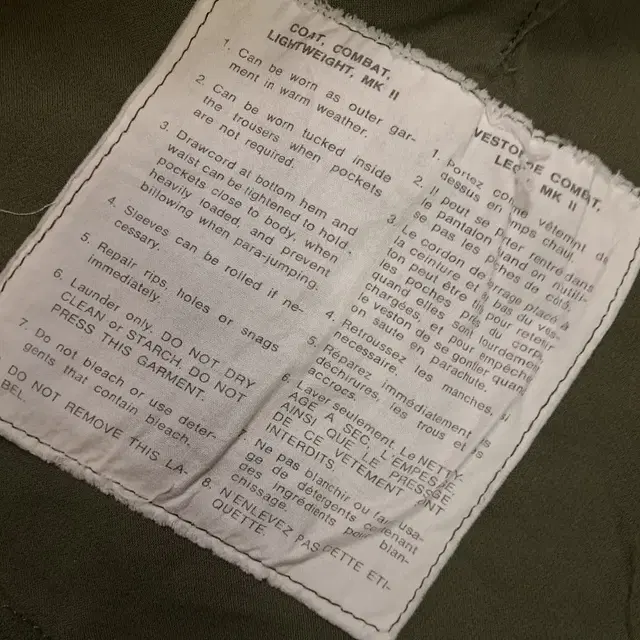 COAT, COMBAT,
LIGHTWEIGHT, MK II
1. Can be worn as outer gar-
ment in warm weather.
2. Can be worn tucked inside
the trousers when pockets
are not required.
3. Drawcord at bottom hem and
waist can be tightened to hold
pockets close to body, when
heavily loaded, and prevent
billowing when para-jumping.
4. Sleeves can be rolled if ne-
cessary.
5. Repair rips, holes or snags
immediately.
6. Launder only. DO NOT DRY
CLEAN or STARCH. DO NOT
PRESS THIS GARMENT.
7. Do not bleach or use deter-
gents that contain bleach.
DO NOT REMOVE THIS LA-
BEL.
VESTON DE COMBAT,
MK II
1. Portez comme vêtement
dessus en temps chaud.
2. peut se porter rentré dans
le pantalon quand on
se pas les poches
3. Le cordon de serrage placé à
la ceinture et au bas du ves-
ton peut être pour retenir
les poches du corps
quand elles sont lourdement
chargées, et pour empêcher
le veston de se gonfler quand
on saute en parachute.
4. Retroussez les manches, si
nécessaire.
5. Réparez immédiatement les
déchirures, les trous et les
accrocs.
6. Lavez seulement. Le NETTOY-
AGE A SEC, L'EMPESAGE
AINSI QUE LE PRESSAGE
DE CE VETEMENT SONT
INTERDITS.
7. Ne pas blanchir ou faire usa-
ge de détergents contenant
des ingrédients pour blan-
chissage.
8. N'ENLEVEZ PAS CETTE ETI-
QUETTE.